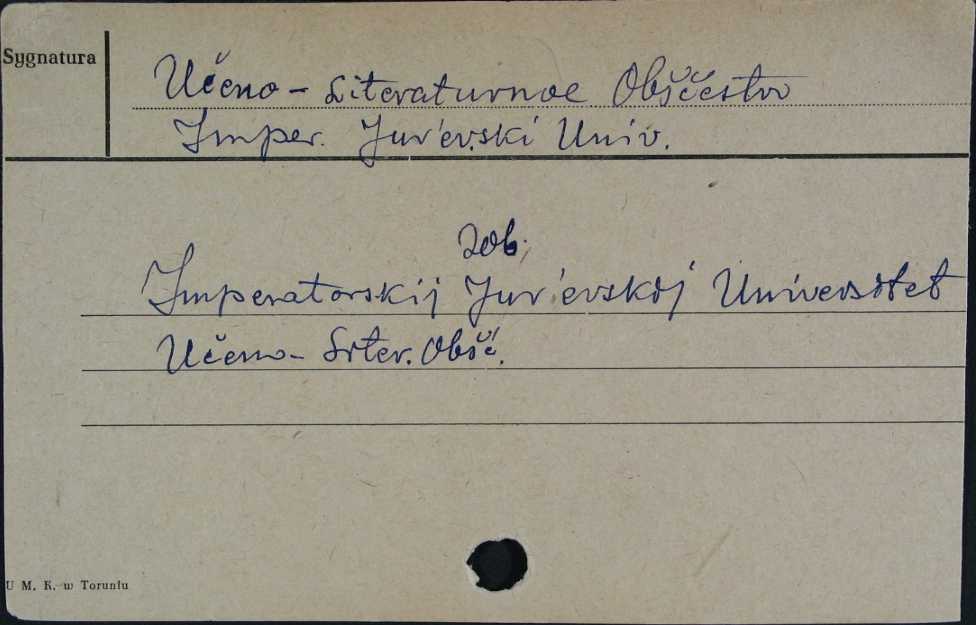 Sygnatura
Učeno - Literaturnoe Obščestvo
Imper. Jur'evski Univ.
zob.
Imperatorskij Jur'evskij Universitet
Učeno - Liter. Obšč.
U M. K. w Toruniu